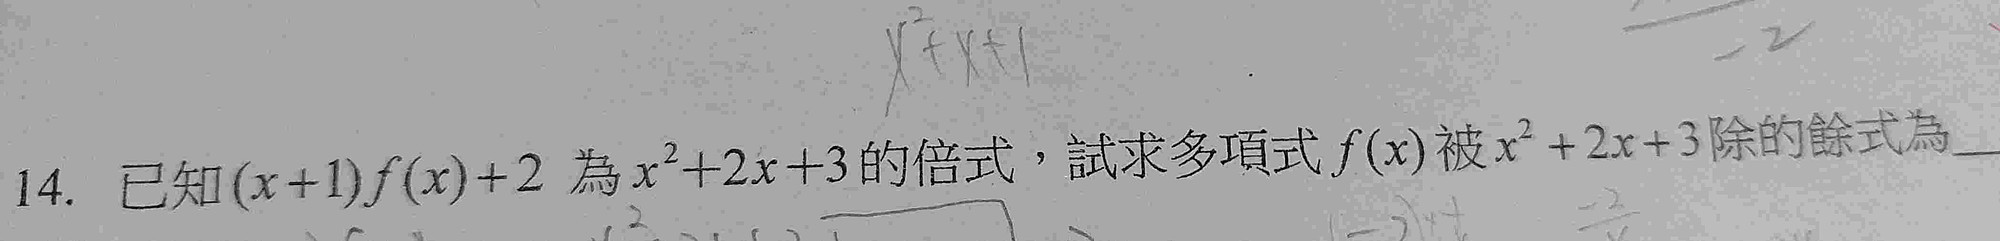 y²+y+1
-2
14. 已知(x+1)f(x)+2 為x²+2x+3的倍式，試求多項式f(x)被x²+2x+3除的餘式為__